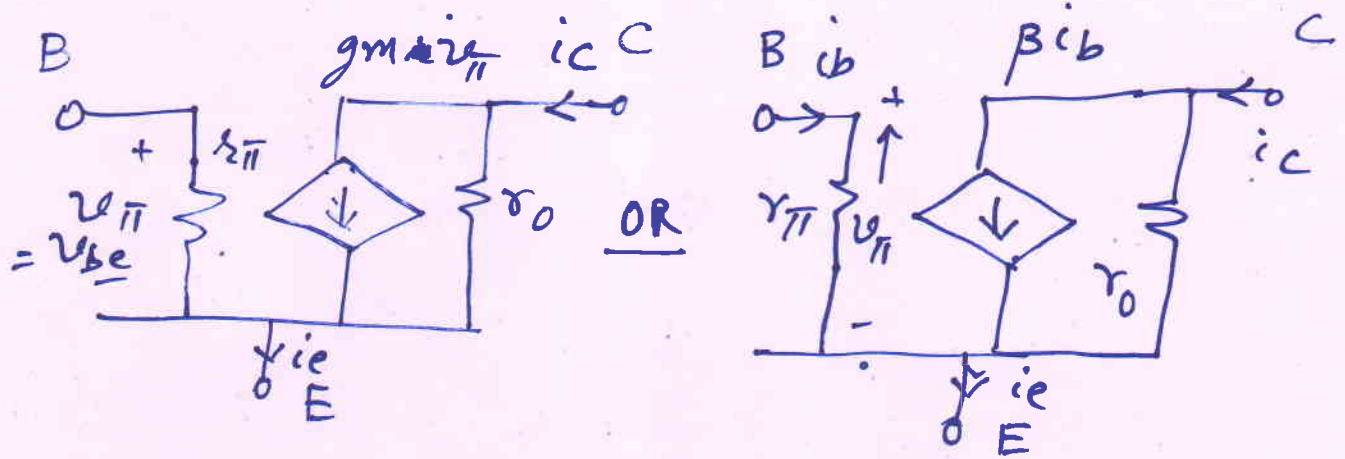 B gm vπ ic C
+ rπ
vπ
= vbe
ro
ie
E
OR
B ib βib C
+
ic
rπ vπ
ro
-
ie
E